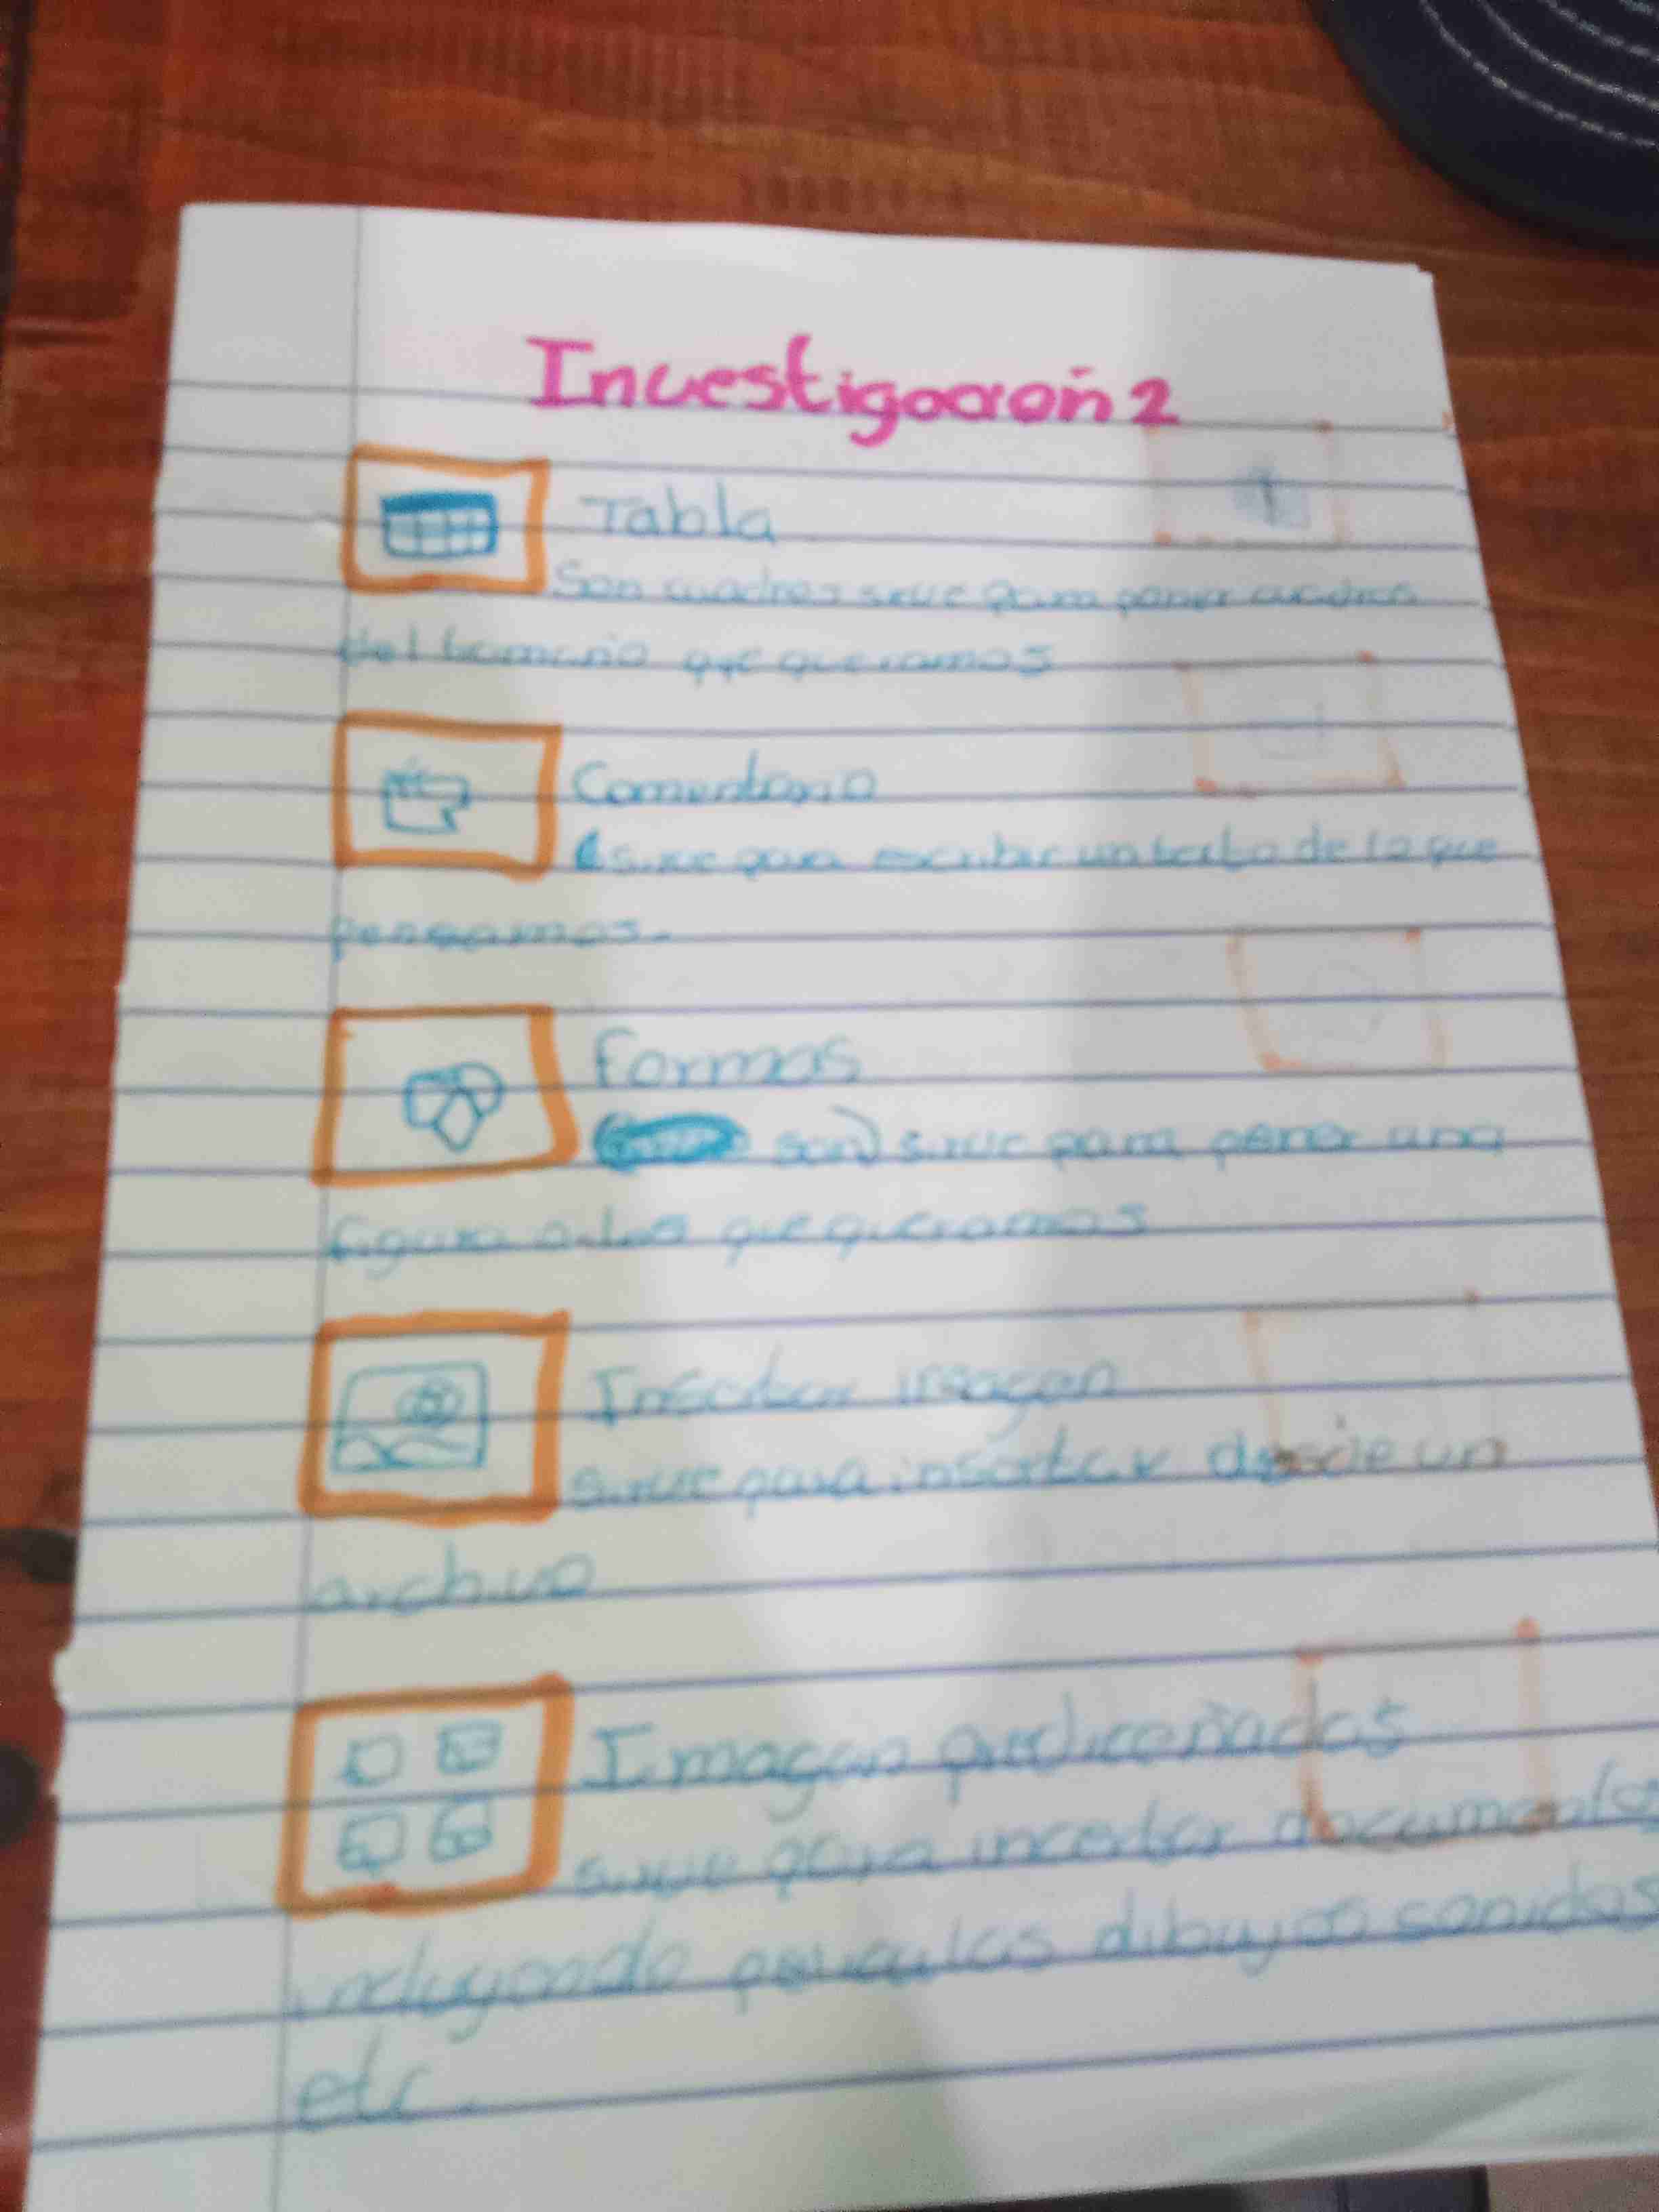 Investigación 2
Tabla
Son cuadros sirve para poner cuadros
del tamaño que queramos
Comentario
sirve para escribir un texto de lo que
pensamos.
Formas
son) sirve para poner una
figura a las que queramos
Insertar imagen
sirve para insertar desde un
archivo
Imagen prediceñadas
sirve para incertar documentos
incluyendo peliculas dibujos sonidos
etc.